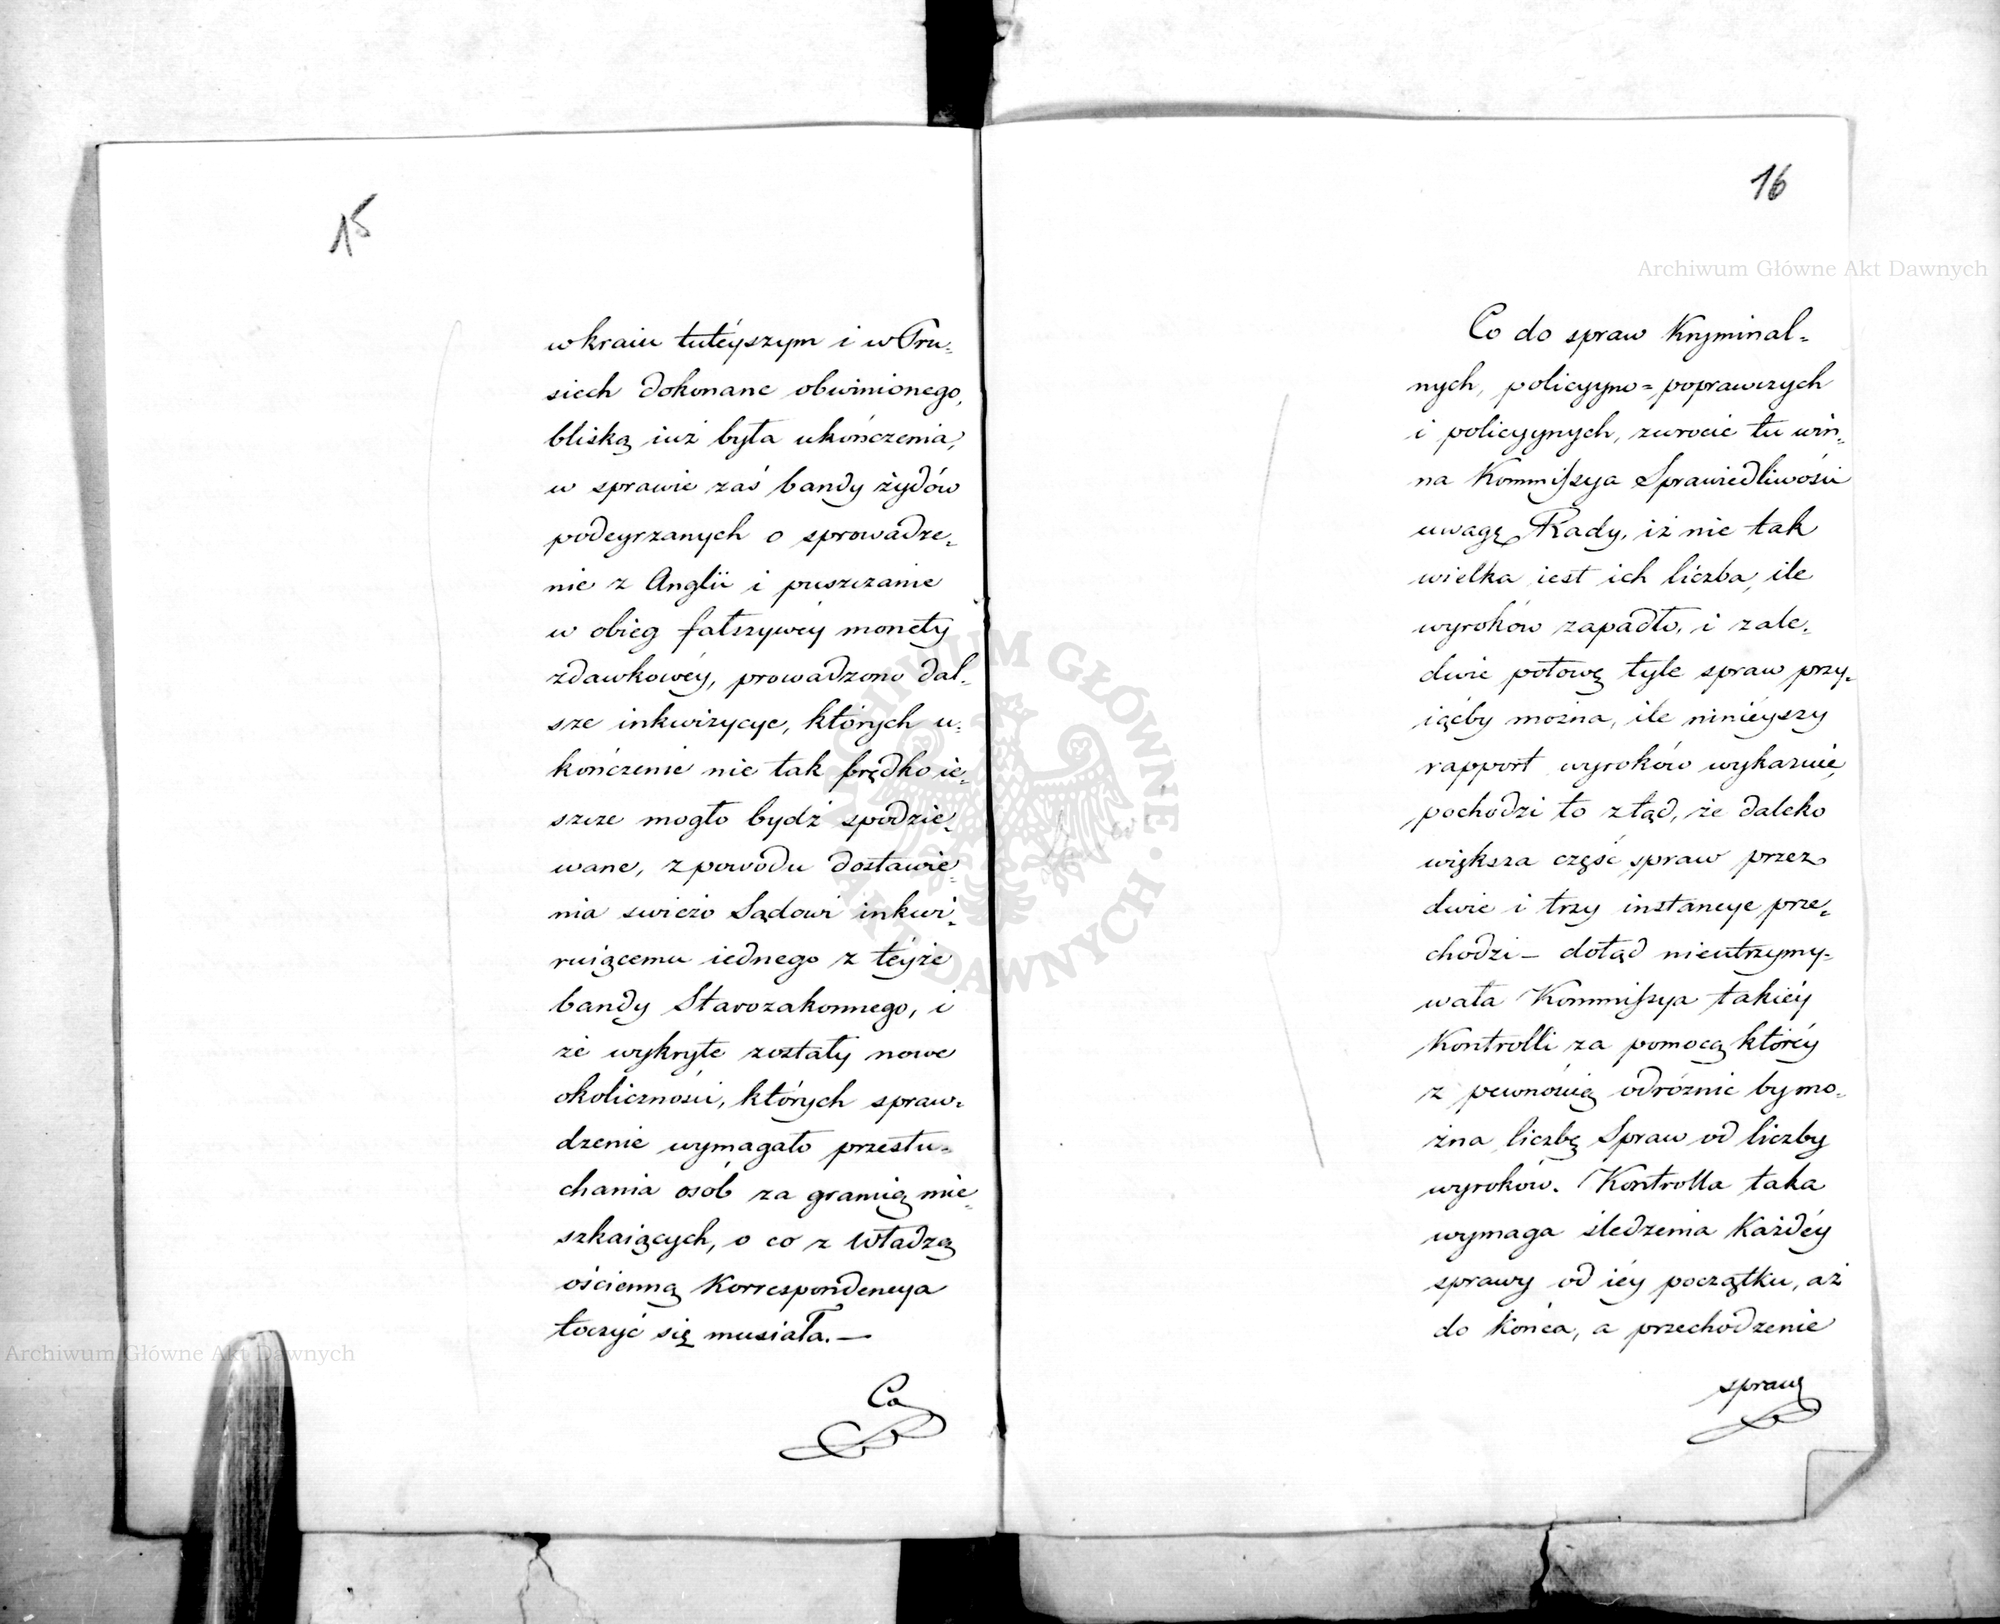 15
w kraiu tutéyszym i w Pru-
siech dokonane obwinionego,
bliską iuż była ukończenia,
w sprawie zaś bandy żydów
podeyrzanych o sprowadze-
nie z Anglii i puszczanie
w obieg fałszywéy monety
zdawkowéy, prowadzono dal-
sze inkwizycye, których u-
kończenie nie tak prędko ie-
szcze mogło bydź spodzie-
wane, z powodu dostawie-
nia swieżo Sądowi inkwi-
ruiącemu iednego z téyże
bandy Starozakonnego, i
że wykryte zostały nowe
okoliczności, których spraw-
dzenie wymagało przesłu-
chania osób za granicą mie-
szkaiących, o co z Władzą
ościenną Korrespondencya
toczyć się musiała. —
Co
16
Co do spraw Kryminal=
nych, policyyno=poprawczych
i policyynych, zwrocić tu win-
na Kommissya Sprawiedliwości
uwagę Rady, iż nie tak
wielka iest ich liczba, ile
wyroków zapadło, i zale-
dwie połowę tyle spraw przy-
iąćby można, ile ninieyszy
rapport wyroków wykazuie,
pochodzi to ztąd, że daleko
większa część spraw przez
dwie i trzy instancye prze-
chodzi – dotąd nieutrzymy-
wała Kommissya takiéy
Kontrolli za pomocą któréy
z pewnością odróżnić by mo-
żna liczbę Spraw od liczby
wyroków. Kontrolla taka
wymaga śledzenia Każdéy
sprawy od iéy początku, aż
do Końca, a przechodzenie
sprawy
Archiwum Główne Akt Dawnych
Archiwum Główne Akt Dawnych
ARCHIWUM GŁÓWNE AKT DAWNYCH